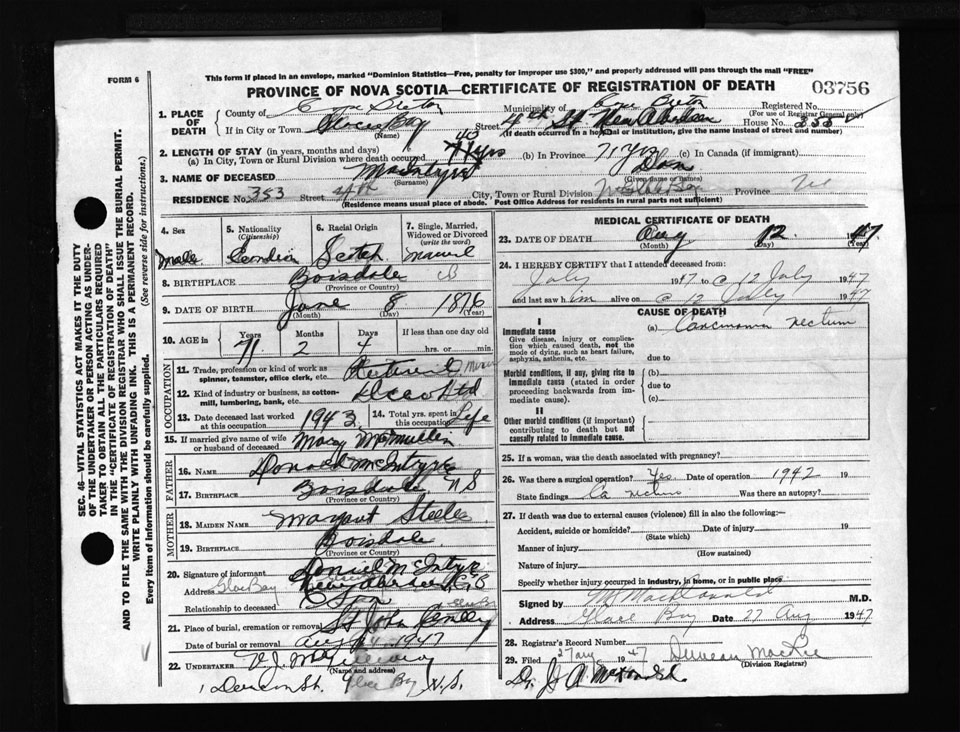 FORM 6
This form if placed in an envelope, marked "Dominion Statistics—Free, penalty for improper use $300," and properly addressed will pass through the mail "FREE"
PROVINCE OF NOVA SCOTIA—CERTIFICATE OF REGISTRATION OF DEATH
03756
1. PLACE OF DEATH
County of Cape Breton Municipality of Cape Breton Registered No.
(For use of Registrar General only)
If in City or Town Glace Bay Street 4th St New Aberdeen House No. 353
(Name) (If death occurred in a hospital or institution, give the name instead of street and number)
2. LENGTH OF STAY (in years, months and days)
(a) In City, Town or Rural Division where death occurred yrs (b) In Province 71 Yrs (c) In Canada (if immigrant)
3. NAME OF DECEASED MacIntyre Dan
(Surname) (Given name or names)
RESIDENCE No. 353 Street 4th City, Town or Rural Division Province
(Residence means usual place of abode. Post Office Address for residents in rural parts not sufficient)
4. Sex Male
5. Nationality (Citizenship) Canadian
6. Racial Origin Scotch
7. Single, Married, Widowed or Divorced (write the word) Married
8. BIRTHPLACE Boisdale CB
(Province or Country)
9. DATE OF BIRTH June 8 1876
(Month) (Day) (Year)
10. AGE in Years Months Days If less than one day old
71 2 4 hrs. or min.
OCCUPATION
11. Trade, profession or kind of work as spinner, teamster, office clerk, etc. Retired Miner
12. Kind of industry or business, as cotton-mill, lumbering, bank, etc. Ltd
13. Date deceased last worked at this occupation 1943
14. Total yrs. spent in this occupation Life
15. If married give name of wife or husband of deceased Mary McMullin
FATHER
16. NAME Donald McIntyre
17. BIRTHPLACE Boisdale NS
(Province or Country)
MOTHER
18. MAIDEN NAME Margaret Steele
19. BIRTHPLACE Boisdale
(Province or Country)
20. Signature of informant Daniel McIntyre
Address Glace Bay New Aberdeen C.B
Relationship to deceased Son
21. Place of burial, cremation or removal St John
Date of burial or removal Aug 1947
22. UNDERTAKER V.J. McGillivray
(Name and address)
St. Glace Bay N.S.
MEDICAL CERTIFICATE OF DEATH
23. DATE OF DEATH Aug 12 47
(Month) (Day) (Year)
24. I HEREBY CERTIFY that I attended deceased from:
July 1947 to 12 July 1947
and last saw him alive on 12 July 1947
CAUSE OF DEATH
I
Immediate cause (a) Carcinoma rectum
Give disease, injury or complication which caused death, not the mode of dying, such as heart failure, asphyxia, asthenia, etc.
due to
Morbid conditions, if any, giving rise to immediate cause (stated in order proceeding backwards from immediate cause).
(b)
due to
(c)
II
Other morbid conditions (if important) contributing to death but not causally related to immediate cause.
25. If a woman, was the death associated with pregnancy?
26. Was there a surgical operation? Yes. Date of operation 1942 19
State findings Ca rectum Was there an autopsy?
27. If death was due to external causes (violence) fill in also the following:—
Accident, suicide or homicide? Date of injury 19
(State which)
Manner of injury
(How sustained)
Nature of injury
Specify whether injury occurred in industry, in home, or in public place
Signed by M MacDonald M.D.
Address Glace Bay Date 27 Aug 1947
28. Registrar's Record Number
29. Filed 27 Aug 1947 Duncan MacRae
(Division Registrar)
Dr. J. A.
SEC. 46—VITAL STATISTICS ACT MAKES IT THE DUTY
OF THE UNDERTAKER OR PERSON ACTING AS UNDER-
TAKER TO OBTAIN ALL THE PARTICULARS REQUIRED
IN THE "CERTIFICATE OF REGISTRATION OF DEATH"
AND TO FILE THE SAME WITH THE DIVISION REGISTRAR WHO SHALL ISSUE THE BURIAL PERMIT.
WRITE PLAINLY WITH UNFADING INK. THIS IS A PERMANENT RECORD.
Every item of information should be carefully supplied. (See reverse side for instructions.)